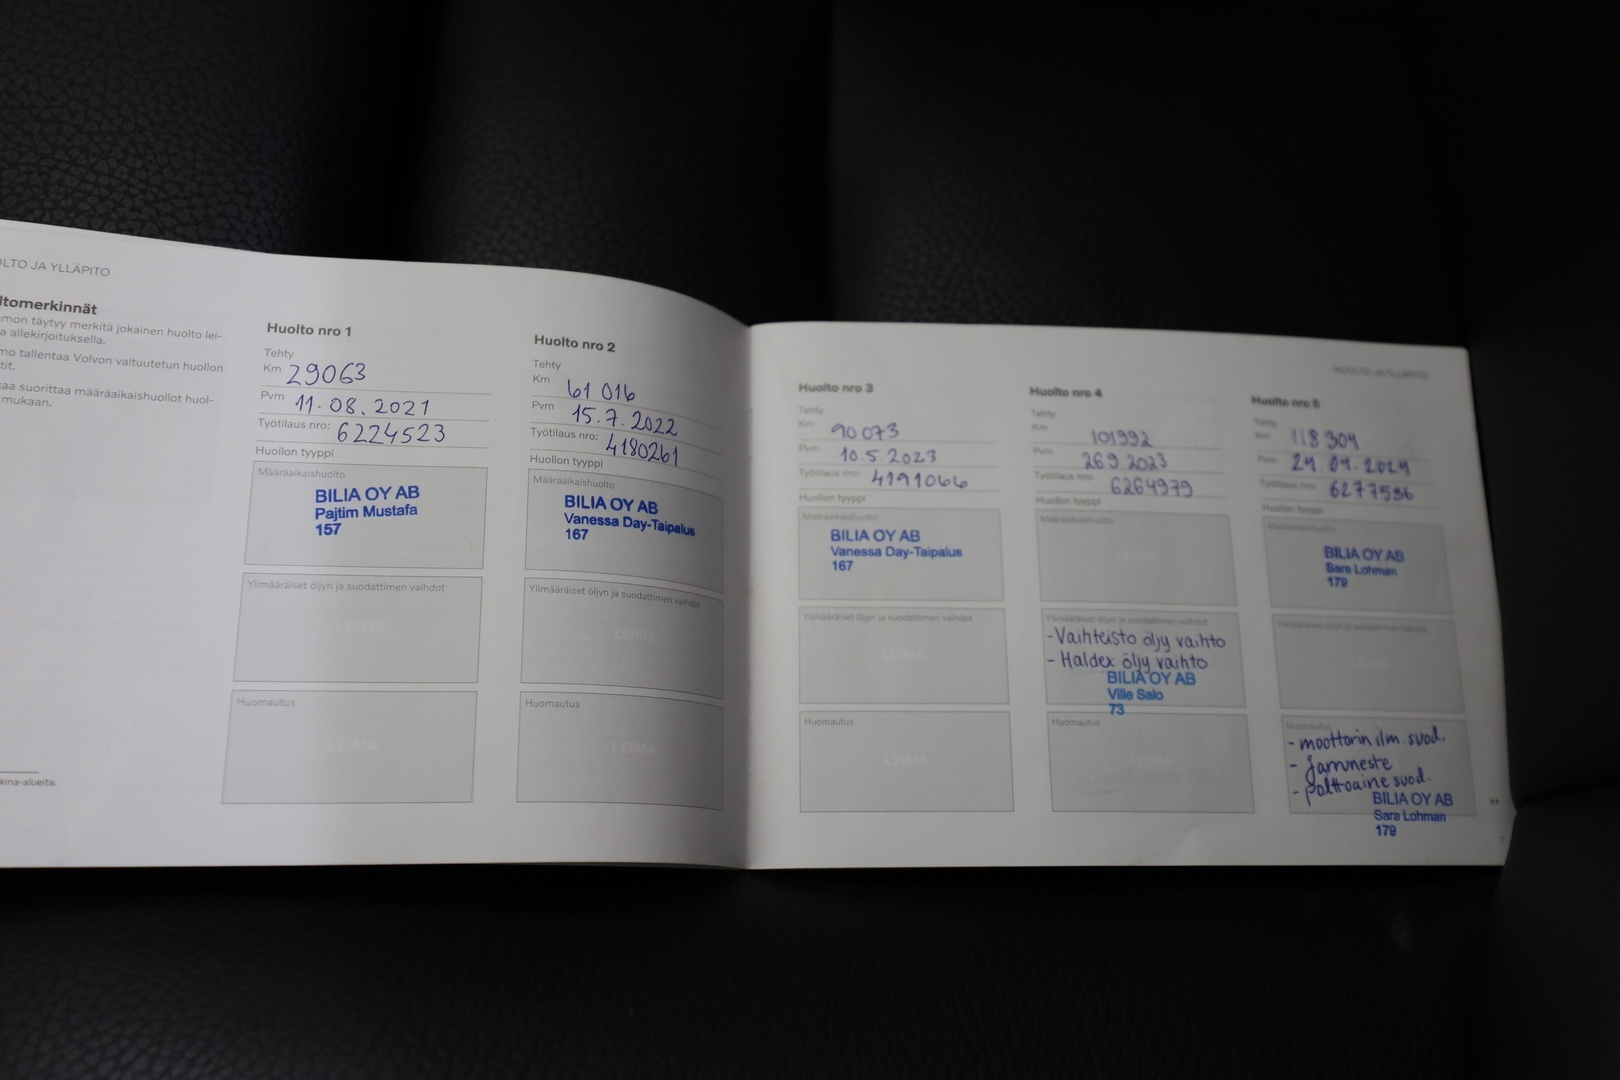 OLTO JA YLLÄPITO
ltomerkinnät
mon täytyy merkitä jokainen huolto lei-
a allekirjoituksella.
mo tallentaa Volvon valtuutetun huollon
tit.
taa suorittaa määräaikaishuollot huol-
mukaan.
kina-alueita.
Huolto nro 1
Tehty
Km 29063
Pvm 11.08.2021
Työtilaus nro: 6224523
Huollon tyyppi
Määräaikaishuolto
BILIA OY AB
Pajtim Mustafa
157
Ylimääräiset öljyn ja suodattimen vaihdot
LEIMA
Huomautus
LEIMA
Huolto nro 2
Tehty
Km 61 016
Pvm 15.7.2022
Työtilaus nro: 4180261
Huollon tyyppi
Määräaikaishuolto
BILIA OY AB
Vanessa Day-Taipalus
167
Ylimääräiset öljyn ja suodattimen vaihdot
LEIMA
Huomautus
LEIMA
HUOLTO JA YLLÄPITO
Huolto nro 3
Tehty
Km 90 073
Pvm 10.5 2023
Työtilaus nro: 4191066
Huollon tyyppi
Määräaikaishuolto
BILIA OY AB
Vanessa Day-Taipalus
167
Ylimääräiset öljyn ja suodattimen vaihdot
LEIMA
Huomautus
LEIMA
Huolto nro 4
Tehty
Km 101992
Pvm 26.9.2023
Työtilaus nro: 6264979
Huollon tyyppi
Määräaikaishuolto
LEIMA
Ylimääräiset öljyn ja suodattimen vaihdot
- Vaihteisto öljy vaihto
- Haldex öljy vaihto
BILIA OY AB
Ville Salo
73
Huomautus
LEIMA
Huolto nro 5
Tehty
Km 118 304
Pvm 24 04.2024
Työtilaus nro: 6277536
Huollon tyyppi
Määräaikaishuolto
BILIA OY AB
Sara Lohman
179
Ylimääräiset öljyn ja suodattimen vaihdot
LEIMA
Huomautus
- moottorin ilm. suod.
- jarruneste
- polttoaine suod.
BILIA OY AB
Sara Lohman
179